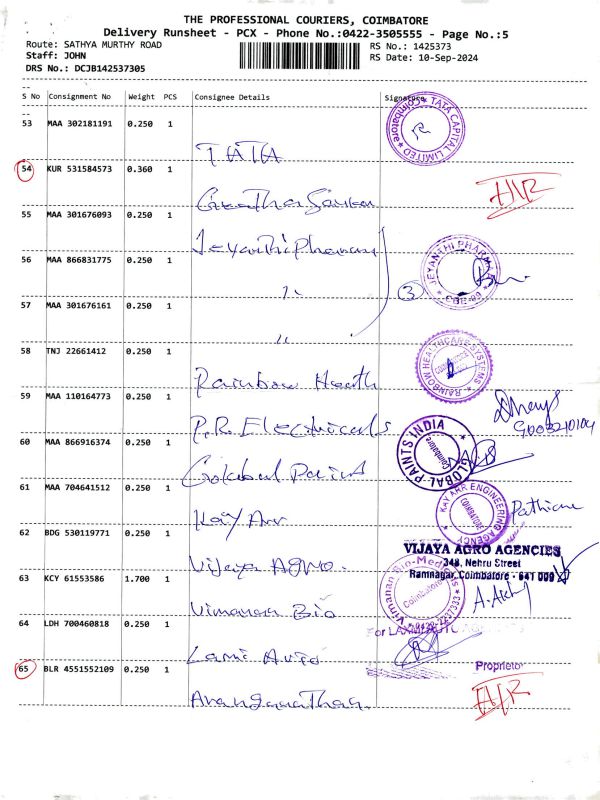 THE PROFESSIONAL COURIERS, COIMBATORE
Delivery Runsheet - PCX - Phone No.:0422-3505555 - Page No.:5
Route: SATHYA MURTHY ROAD
RS No.: 1425373
Staff: JOHN
RS Date: 10-Sep-2024
DRS No.: DCJB142537305
S No Consignment No Weight PCS Consignee Details Signature
53 MAA 302181191 0.250 1 TATA
TATA CAPITAL LIMITED Coimbatore
54 KUR 531584573 0.360 1
H/R
55 MAA 301676093 0.250 1 Jeyanthi Pharam
56 MAA 866831775 0.250 1 "
JEYANTHI PHARMA
3
57 MAA 301676161 0.250 1 "
58 TNJ 22661412 0.250 1 Rainbow Heath
RAINBOW HEALTHCARE SYSTEMS
59 MAA 110164773 0.250 1 P.R. Electricals
60 MAA 866916374 0.250 1
GLOBAL-PAINTS INDIA Coimbatore
61 MAA 704641512 0.250 1 Kay Arr
KAY ARR ENGINEERING AGENCY
62 BDG 530119771 0.250 1 Vijaya Agro.
VIJAYA AGRO AGENCIES
348, Nehru Street
Ramnagar, Coimbatore - 641 009
63 KCY 61553586 1.700 1 Vimanan Bio
Vimanan Bio-Medicals Coimbatore
64 LDH 700460818 0.250 1
Proprietor
65 BLR 4551552109 0.250 1
H/R